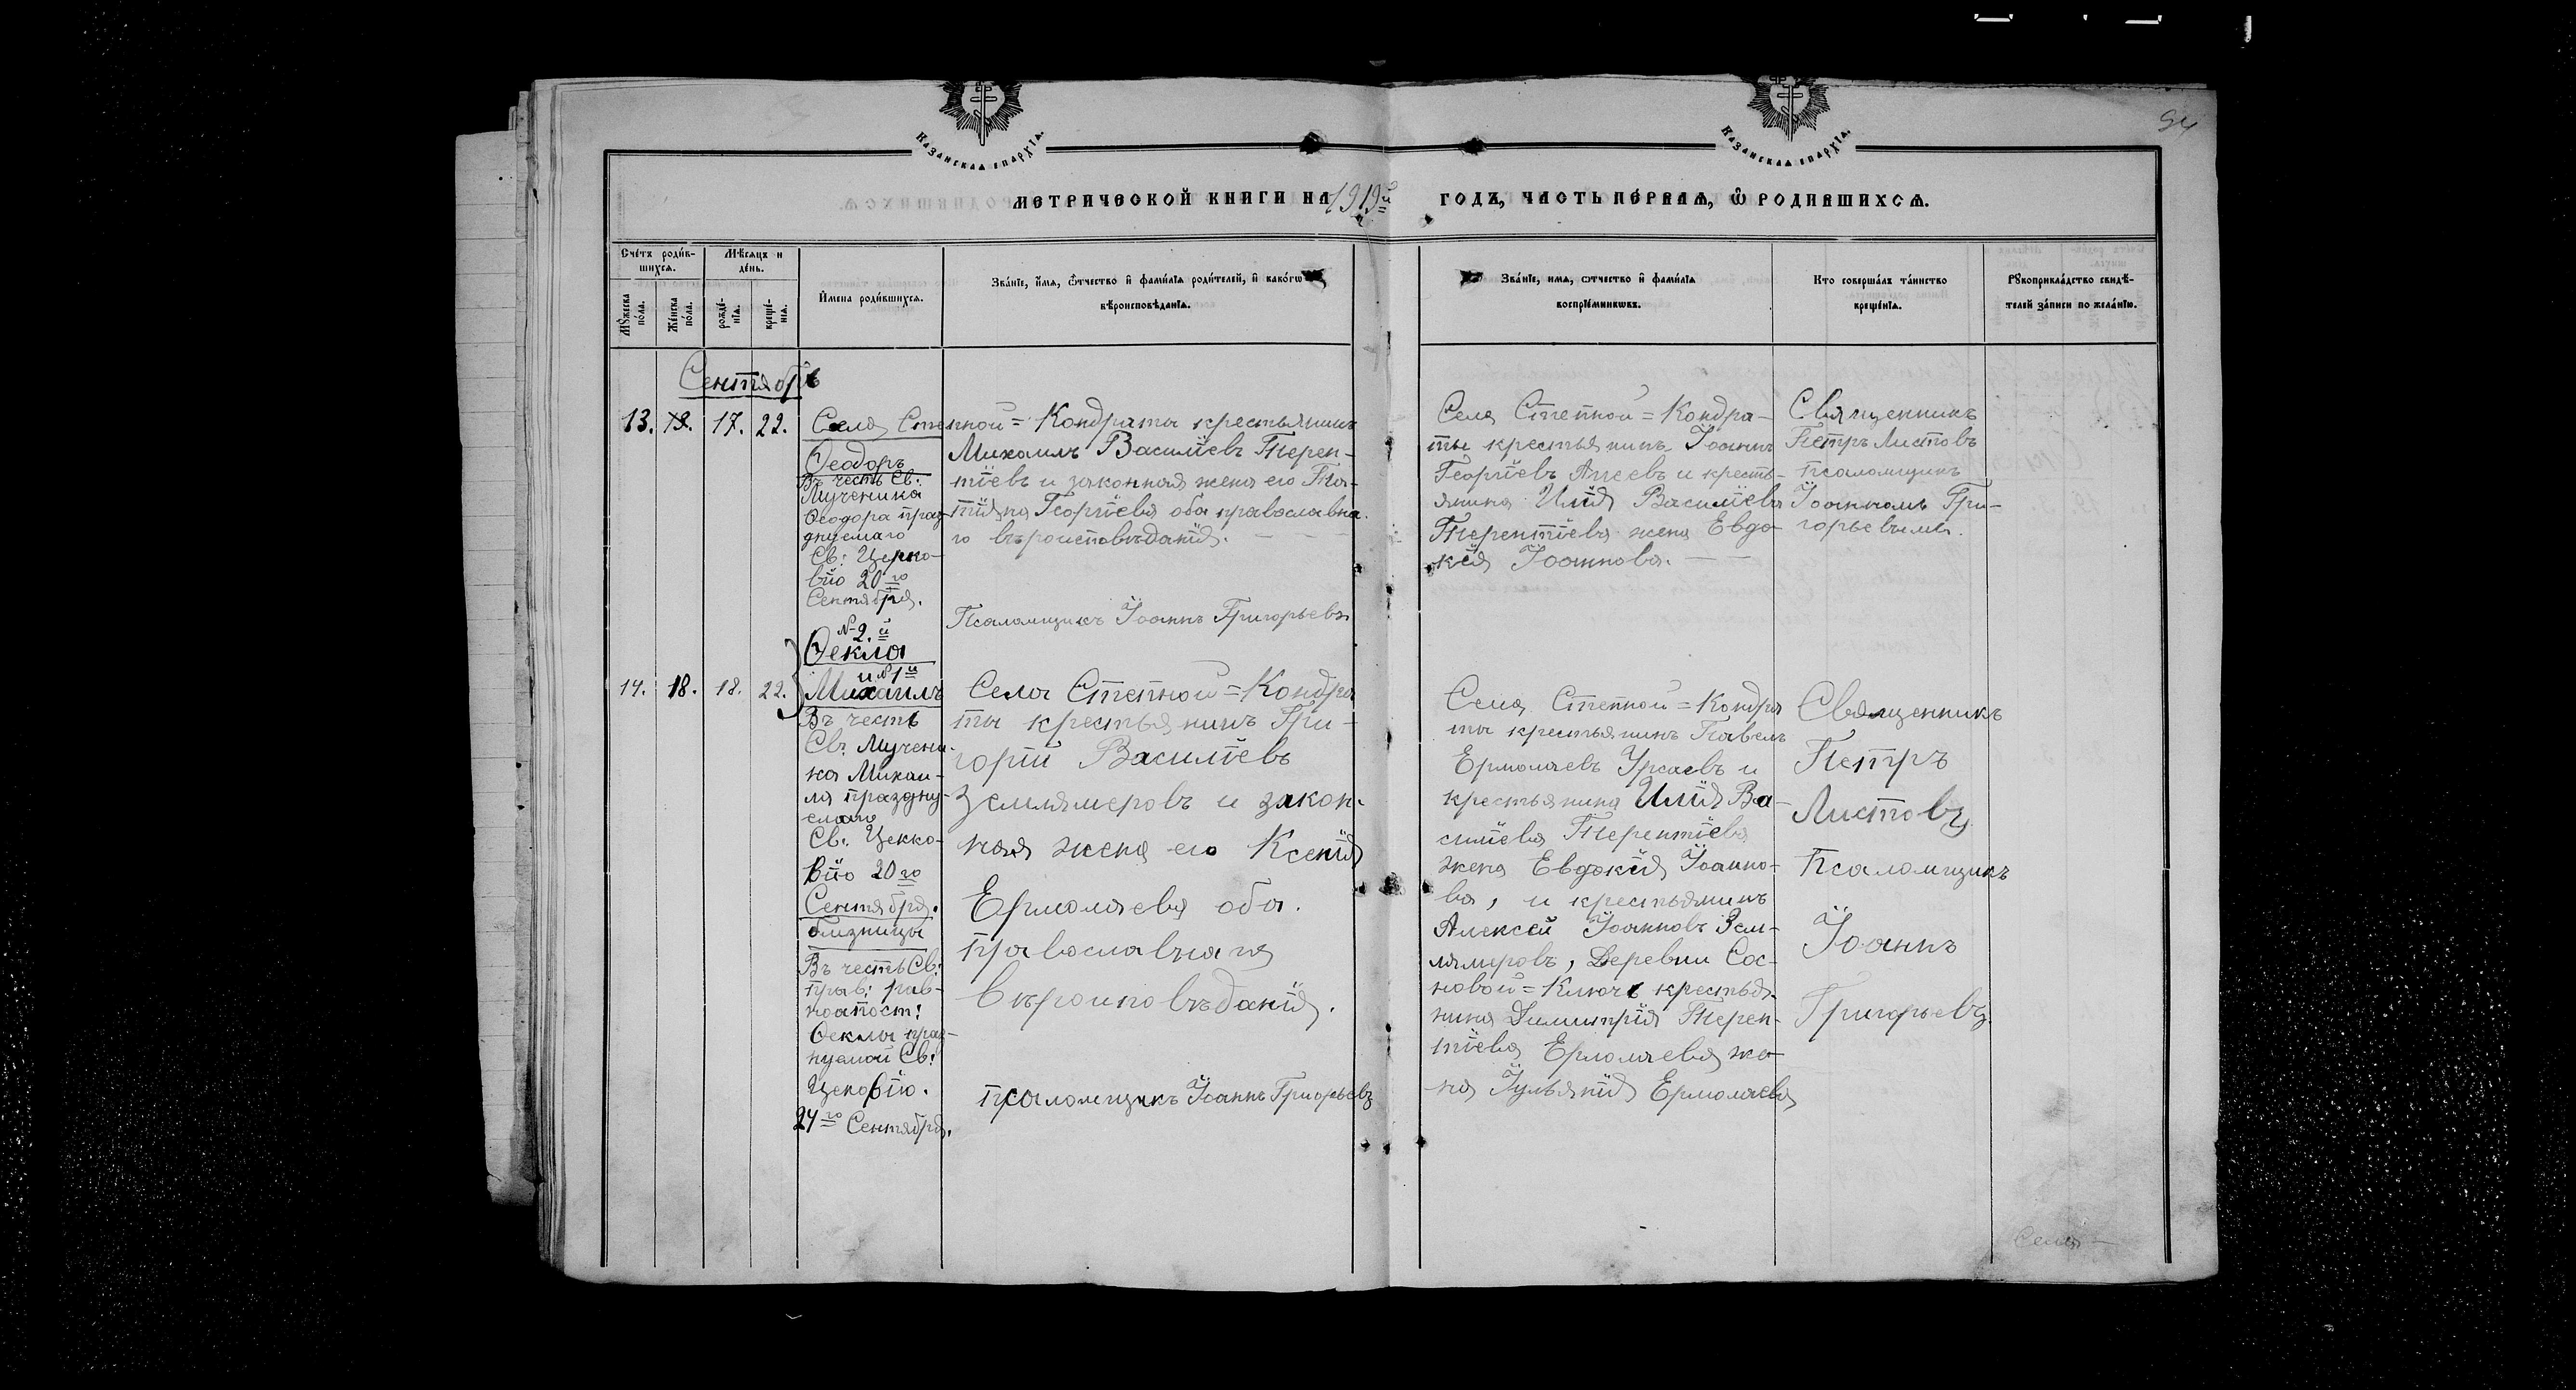 94
Казанская епархїѧ.
Казанская епархїѧ.
МЕТРИЧЕСКОЙ КНИГИ НА 1919й ГОДЪ, ЧАСТЬ ПЕ́РВАѦ, Ѡ҆ РОДИВШИХСѦ.
Сче́тъ роди́в-
шихсѧ.
Мѣ́сѧцъ и
де́нь.
Мꙋ́жеска
по́ла.
Же́нска
по́ла.
рожде́-
нїѧ.
креще́-
нїѧ.
И҆мена роди́вшихсѧ.
Зва́нїе, и҆́мѧ, ѻ҆́тчество и҆ фами́лїѧ роди́телей, и҆ како́гѡ
вѣроисповѣ́данїѧ.
Зва́нїе, имѧ, ѻтчество и҆ фами́лїѧ
воспрїе́мникѡвъ.
Кто соверша́лъ та́инство
креще́нїѧ.
Рꙋкоприкла́дство свидѣ́-
телей за́писи по жела́нїю.
Сентябрь
13. 18. 17. 22.
Села Степной=Кондраты крестьянинъ
Ѳеодоръ
Въ честь Св:
Мученика
Ѳеодора праз-
днуемаго
Св: Церко-
вїю 20го
Сентября.
Михаилъ Василїевъ Терен-
тїевъ и законная жена его Та-
тїяна Георгїева оба православна-
го вѣроисповѣданїя.
Псаломщикъ Їоаннъ Григорьевъ
Села Степной=Кондра-
ты крестьянинъ Їоаннъ
Георгїевъ Агеевъ и кресть-
янина Илїя Василїева
Терентїева жена Евдо-
кїя Їоаннова.
Священникъ
Петръ Листовъ
псаломщикъ
Їоанномъ Гри-
горьевымъ.
14. 18. 18. 22.
№ 2.й
Ѳекла
и № 1й
Михаилъ
Въ честь
Св: Мучени-
ка Михаи-
ла праздну-
емаго
Св: Цекко-
вїю 20го
Сентября.
близницы
Въ честь Св:
прав: рав-
ноапост:
Ѳеклы праз-
нуемой Св:
Цековїю.
24го Сентября.
Села Степной=Кондра
ты крестьянинъ Гри-
горїй Василїевъ
Землямеровъ и закон-
ная жена его Ксенїя
Ермолаева оба.
православнаго
вѣроиповѣданїя.
псаломщикъ Їоаннъ Григорьевъ
Села Степной=Кондра
ты крестьянинъ Павелъ
Ермолаевъ Урсаевъ и
крестьянина Илїя Ва-
силїева Терентїева
жена Евдокїя Їоанно-
ва, и крестьянинъ
Алексей Їоанновъ Зем-
лямеровъ, Деревни Сос-
новой=Ключъ крестья-
нина Димитрїя Терен-
тїева Ермолаева же-
на Їульянїя Ермолаева
Священникъ
Петръ
Листовъ
Псаломщикъ
Їоаннъ
Григорьевъ.
Села